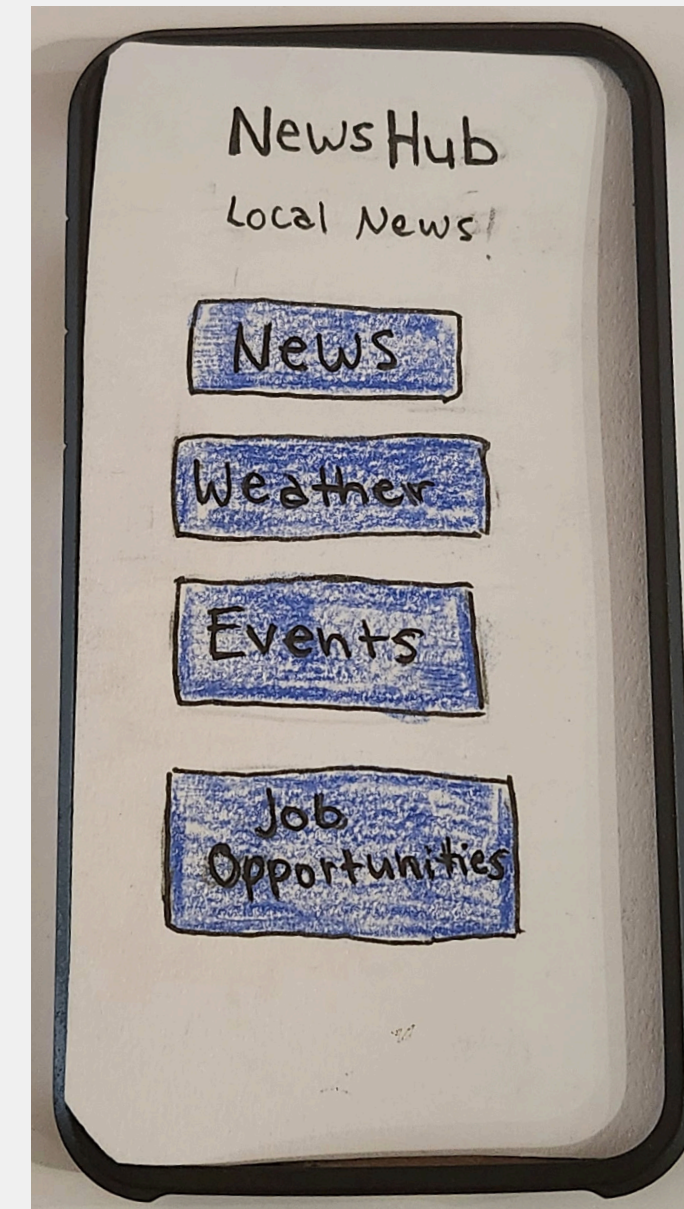 News Hub
Local News!
News
Weather
Events
Job
Opportunities